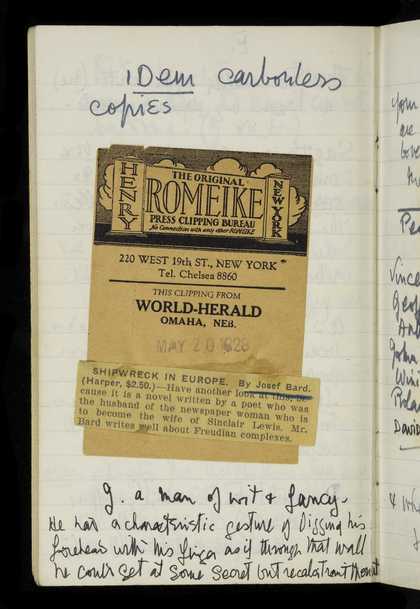 1 Dem carbonless
copies
HENRY
THE ORIGINAL
ROMEIKE
PRESS CLIPPING BUREAU
No Connection with any other ROMEIKE
NEW YORK
220 WEST 19th ST., NEW YORK
Tel. Chelsea 8860
THIS CLIPPING FROM
WORLD-HERALD
OMAHA, NEB.
MAY 20 1928
SHIPWRECK IN EUROPE. By Josef Bard.
(Harper, $2.50.)—Have another look at this, be
cause it is a novel written by a poet who was
the husband of the newspaper woman who is
to become the wife of Sinclair Lewis. Mr.
Bard writes well about Freudian complexes.
J. a man of wit & fancy.
He had a characteristic gesture of digging his
forehead with his finger as if through that wall
he could get at some secret but recalcitrant
your
are
Vince
John
David